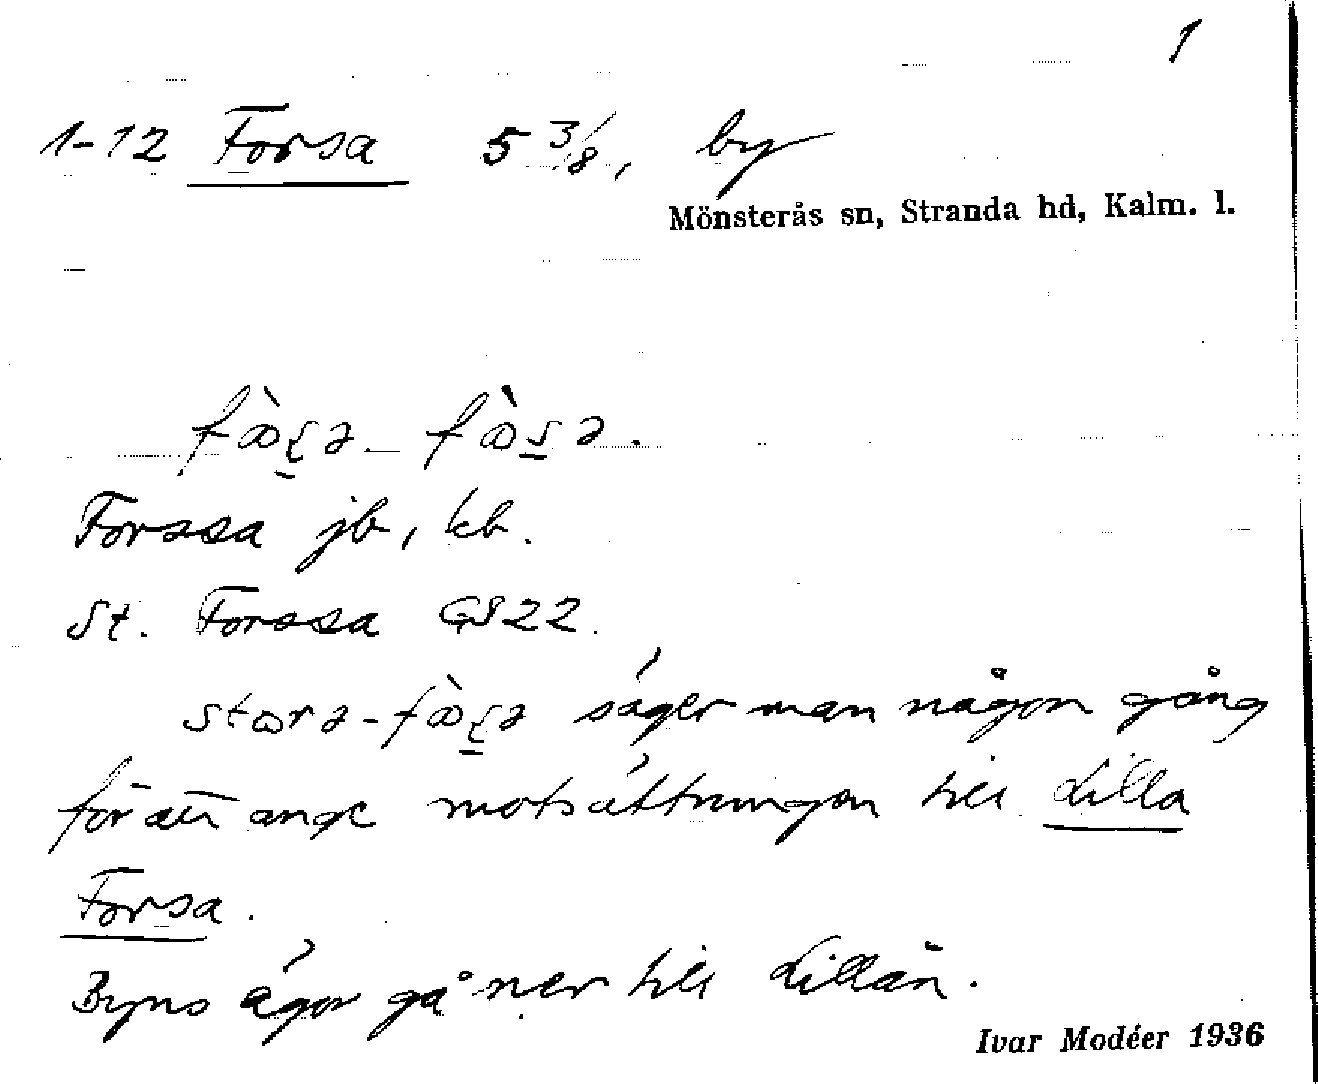 1
1-12 Forsa 5 3/8, by
Mönsterås sn, Stranda hd, Kalm. l.
Forssa jb, kb.
St. Forssa GS22.
säger man någon gång
för att ange motsättningen till Lilla
Forsa.
Byns ägor gå ner till Lillån.
Ivar Modéer 1936